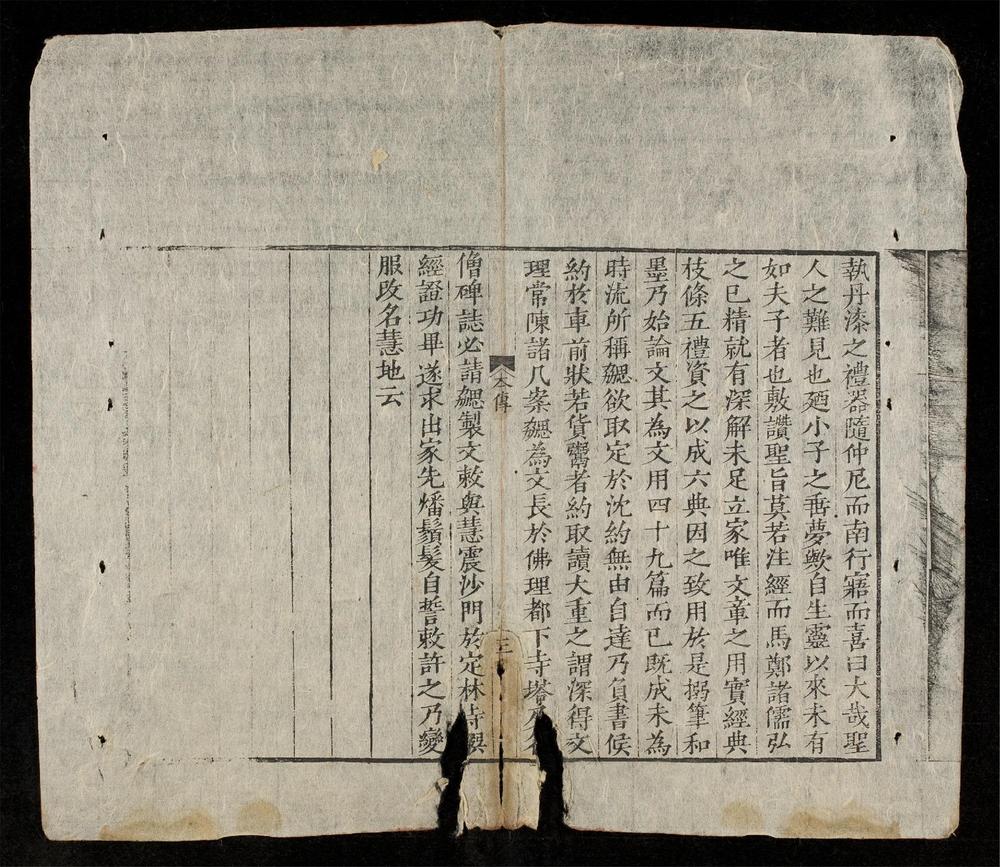 執丹漆之禮器隨仲尼而南行寤而喜曰大哉聖
人之難見也廼小子之垂夢歟自生靈以來未有
如夫子者也敷讚聖旨莫若注經而馬鄭諸儒弘
之已精就有深解未足立家唯文章之用實經典
枝條五禮資之以成六典因之致用於是搦筆和
墨乃始論文其為文用四十九篇而已既成未為
時流所稱勰欲取定於沈約無由自達乃負書候
約於車前狀若貨鬻者約取讀大重之謂深得文
理常陳諸几案勰為文長於佛理都下寺塔
本傳
三
僧碑誌必請勰製文敕與慧震沙門於定林寺撰
經證功畢遂求出家先燔鬚髮自誓敕許之乃變
服改名慧地云